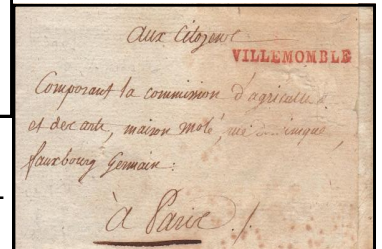 aux Citoyens
VILLEMOMBLE
Composant la commission d'agriculture
et des arts, maison molé, rue
fauxbourg Germain.
à Paris ./.